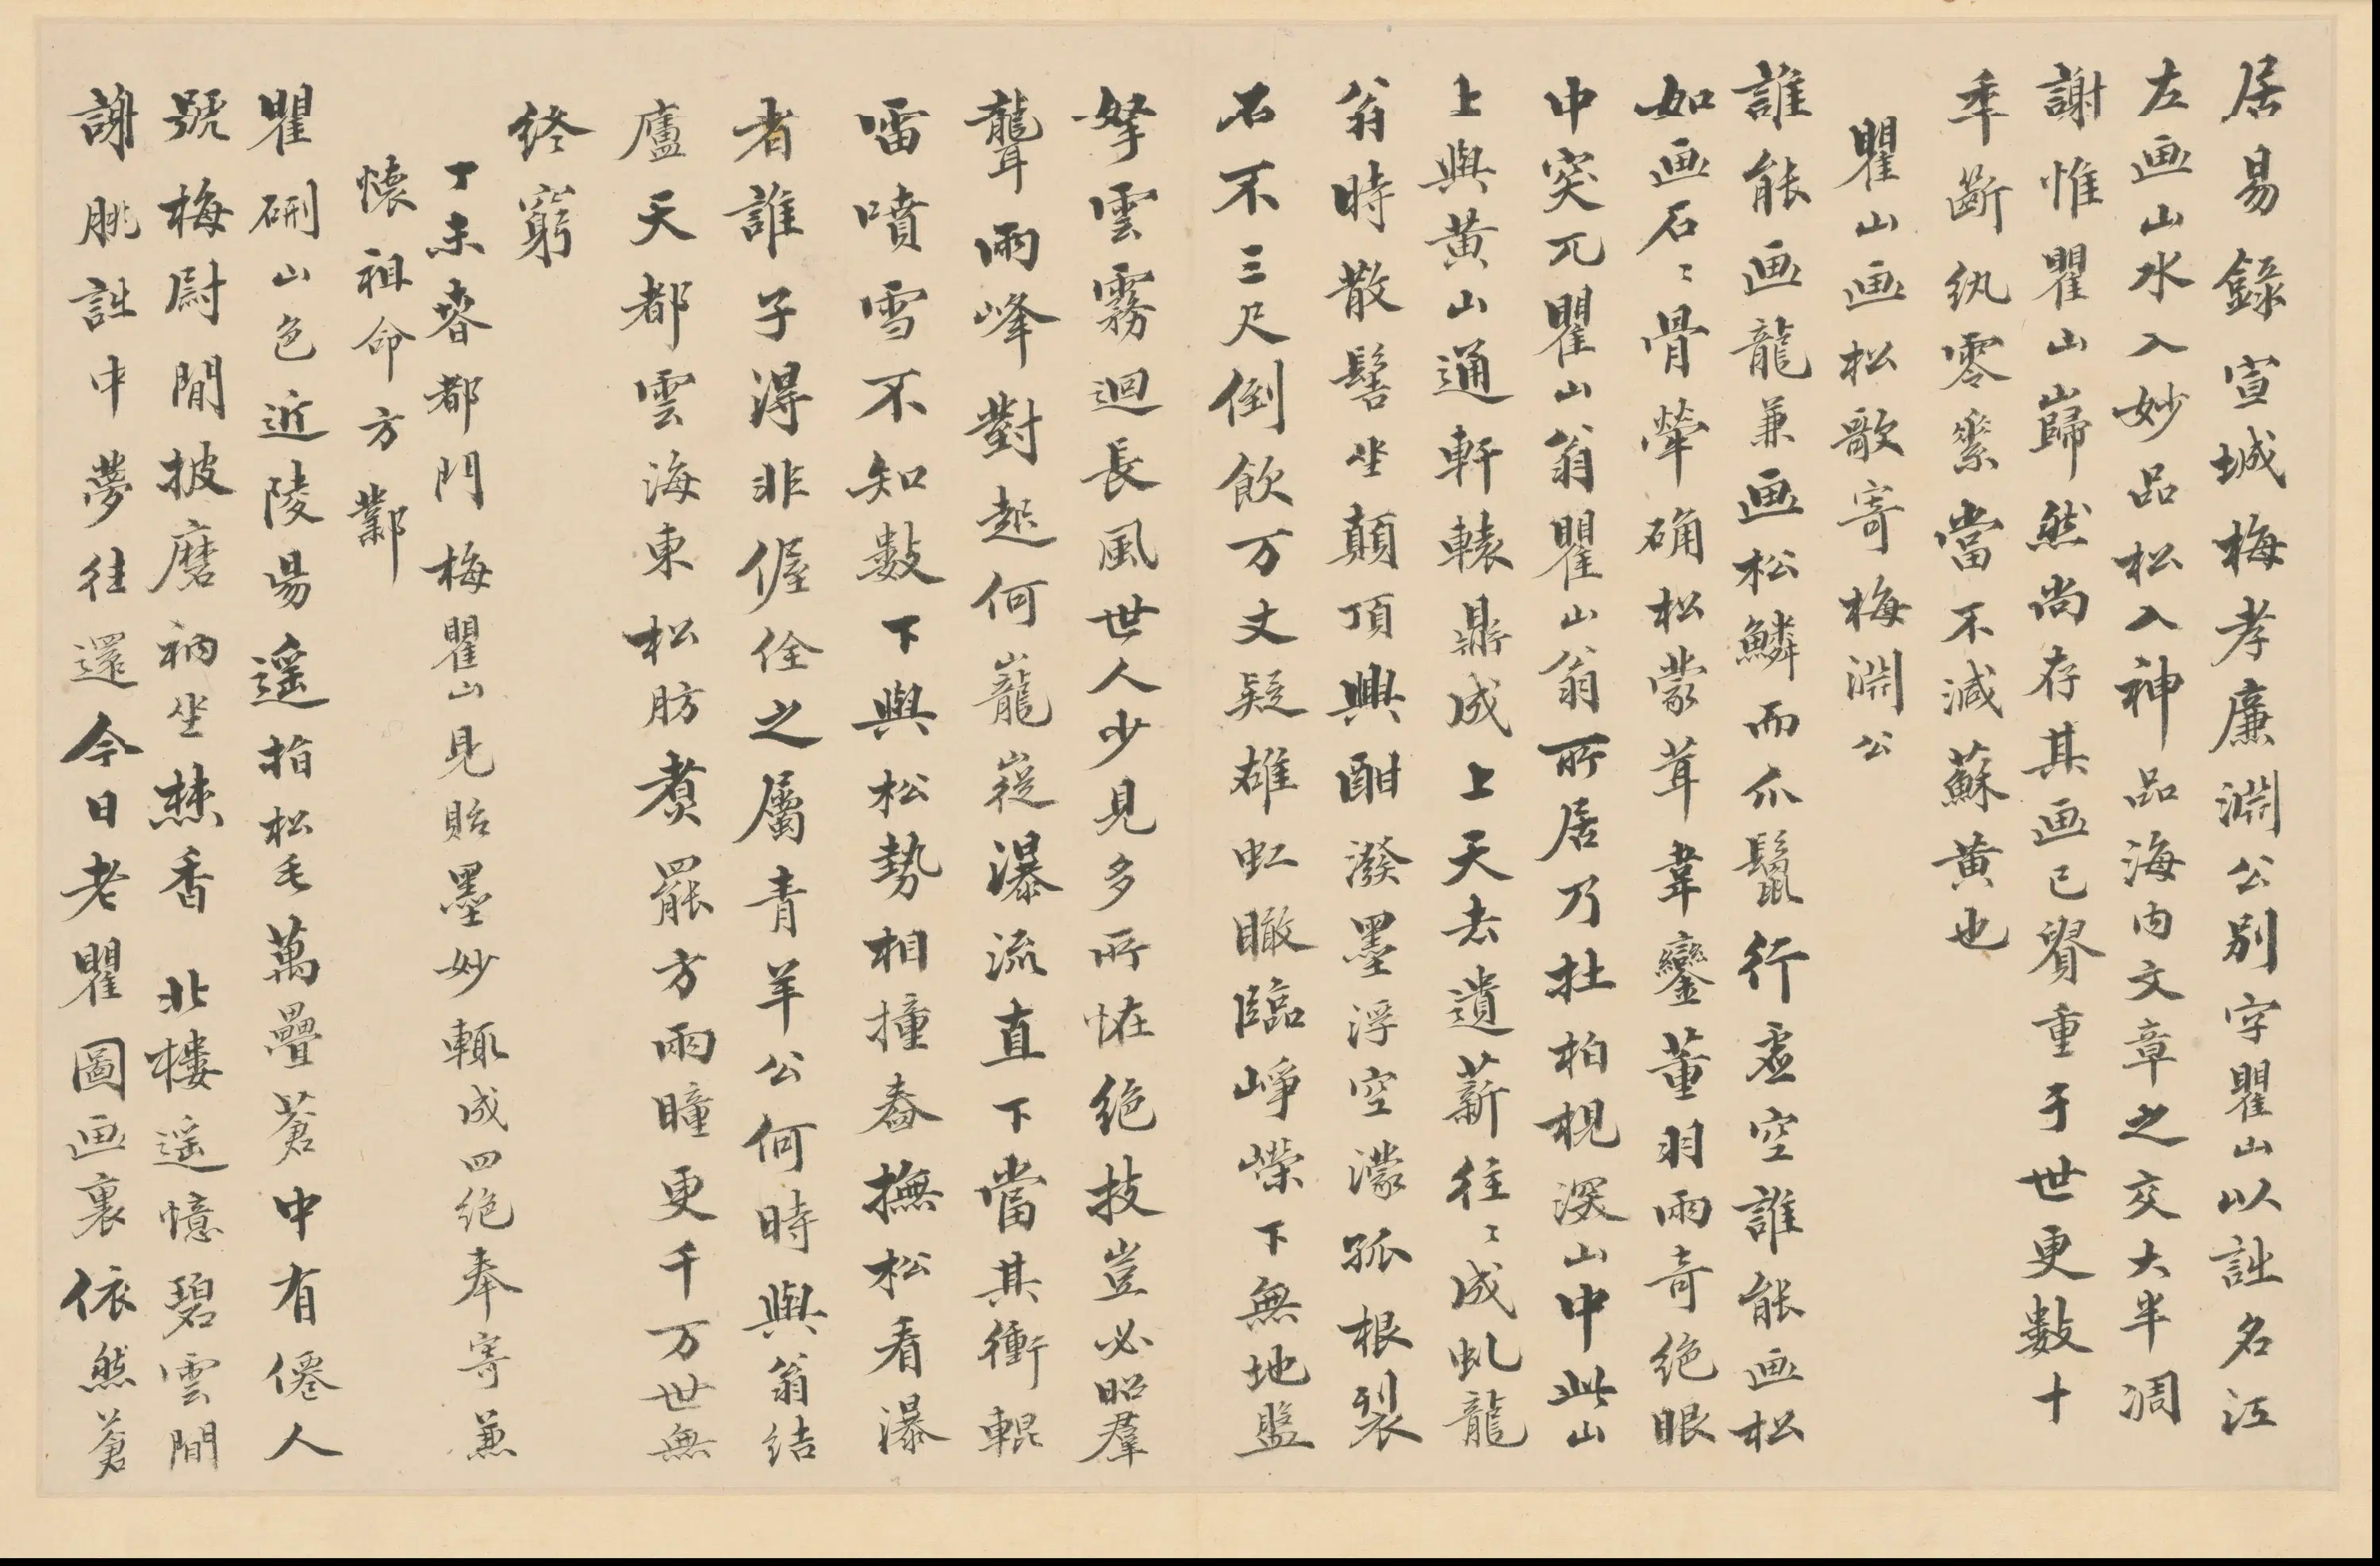 居易錄宣城梅孝廉淵公別字瞿山以詩名江
左画山水入妙品松入神品海内文章之交大半凋
謝惟瞿山巋然尚存其画已貿重于世更數十
年斷紈零縑當不減蘇黄也
瞿山画松歌寄梅淵公
誰能画龍兼画松鱗而爪鬣行虚空誰能画松
如画石〻骨犖确松蒙茸韋鑾董羽兩奇絶眼
中突兀瞿山翁瞿山翁所居乃在柏梘深山中此山
上與黄山通軒轅鼎成上天去遺薪往〻成虬龍
翁時散髻坐顛頂興酣潑墨浮空濛孤根裂
石不三尺倒飲万丈疑雄虹瞰臨崢嶸下無地盬
拏雲霧迴長風世人少見多所恠絶技豈必昭羣
聾兩峰對起何巃嵸瀑流直下當其衝輥
雷噴雪不知數下與松勢相撞舂撫松看瀑
者誰子得非偓佺之屬青羊公何時與翁結
廬天都雲海東松肪煑罷方兩瞳更千万世無
終窮
丁未春都門梅瞿山見貽墨妙輒成四絶奉寄兼
懷祖命方鄴
瞿硎山色近陵陽遥指松毛萬疊蒼中有僊人
號梅尉閒披磨衲坐焚香 北樓遥憶碧雲間
謝朓詩中夢往還今日老瞿圖画裏依然蒼